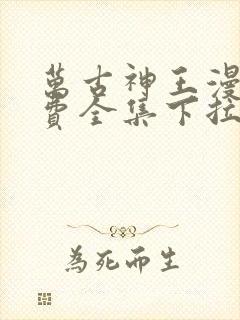 萬古神王漫
費全集下拉
為死而生